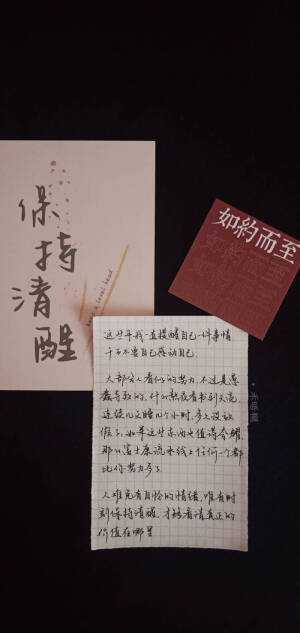 保
持
清
醒
keep a level head
如約而至
这些年我一直提醒自己一件事情
千万不要自己感动自己。
大部分人看似的努力,不过是愚
蠢导致的。什么熬夜看书到天亮,
连续几天睡几个小时,多久没放
假了,如果这些东西也值得夸耀,
那么富士康流水线上任何一个都
比你努力多了。
人难免有自怜的情绪,唯有时
刻保持清醒,才能看清真正的
价值在哪里